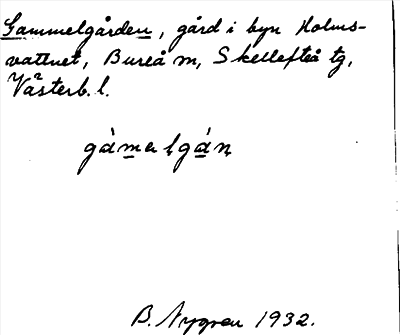 Gammelgården, gård i byn Holms-
vattnet, Bureå sn, Skellefteå tg,
Västerb. l.
B. Nygren 1932.